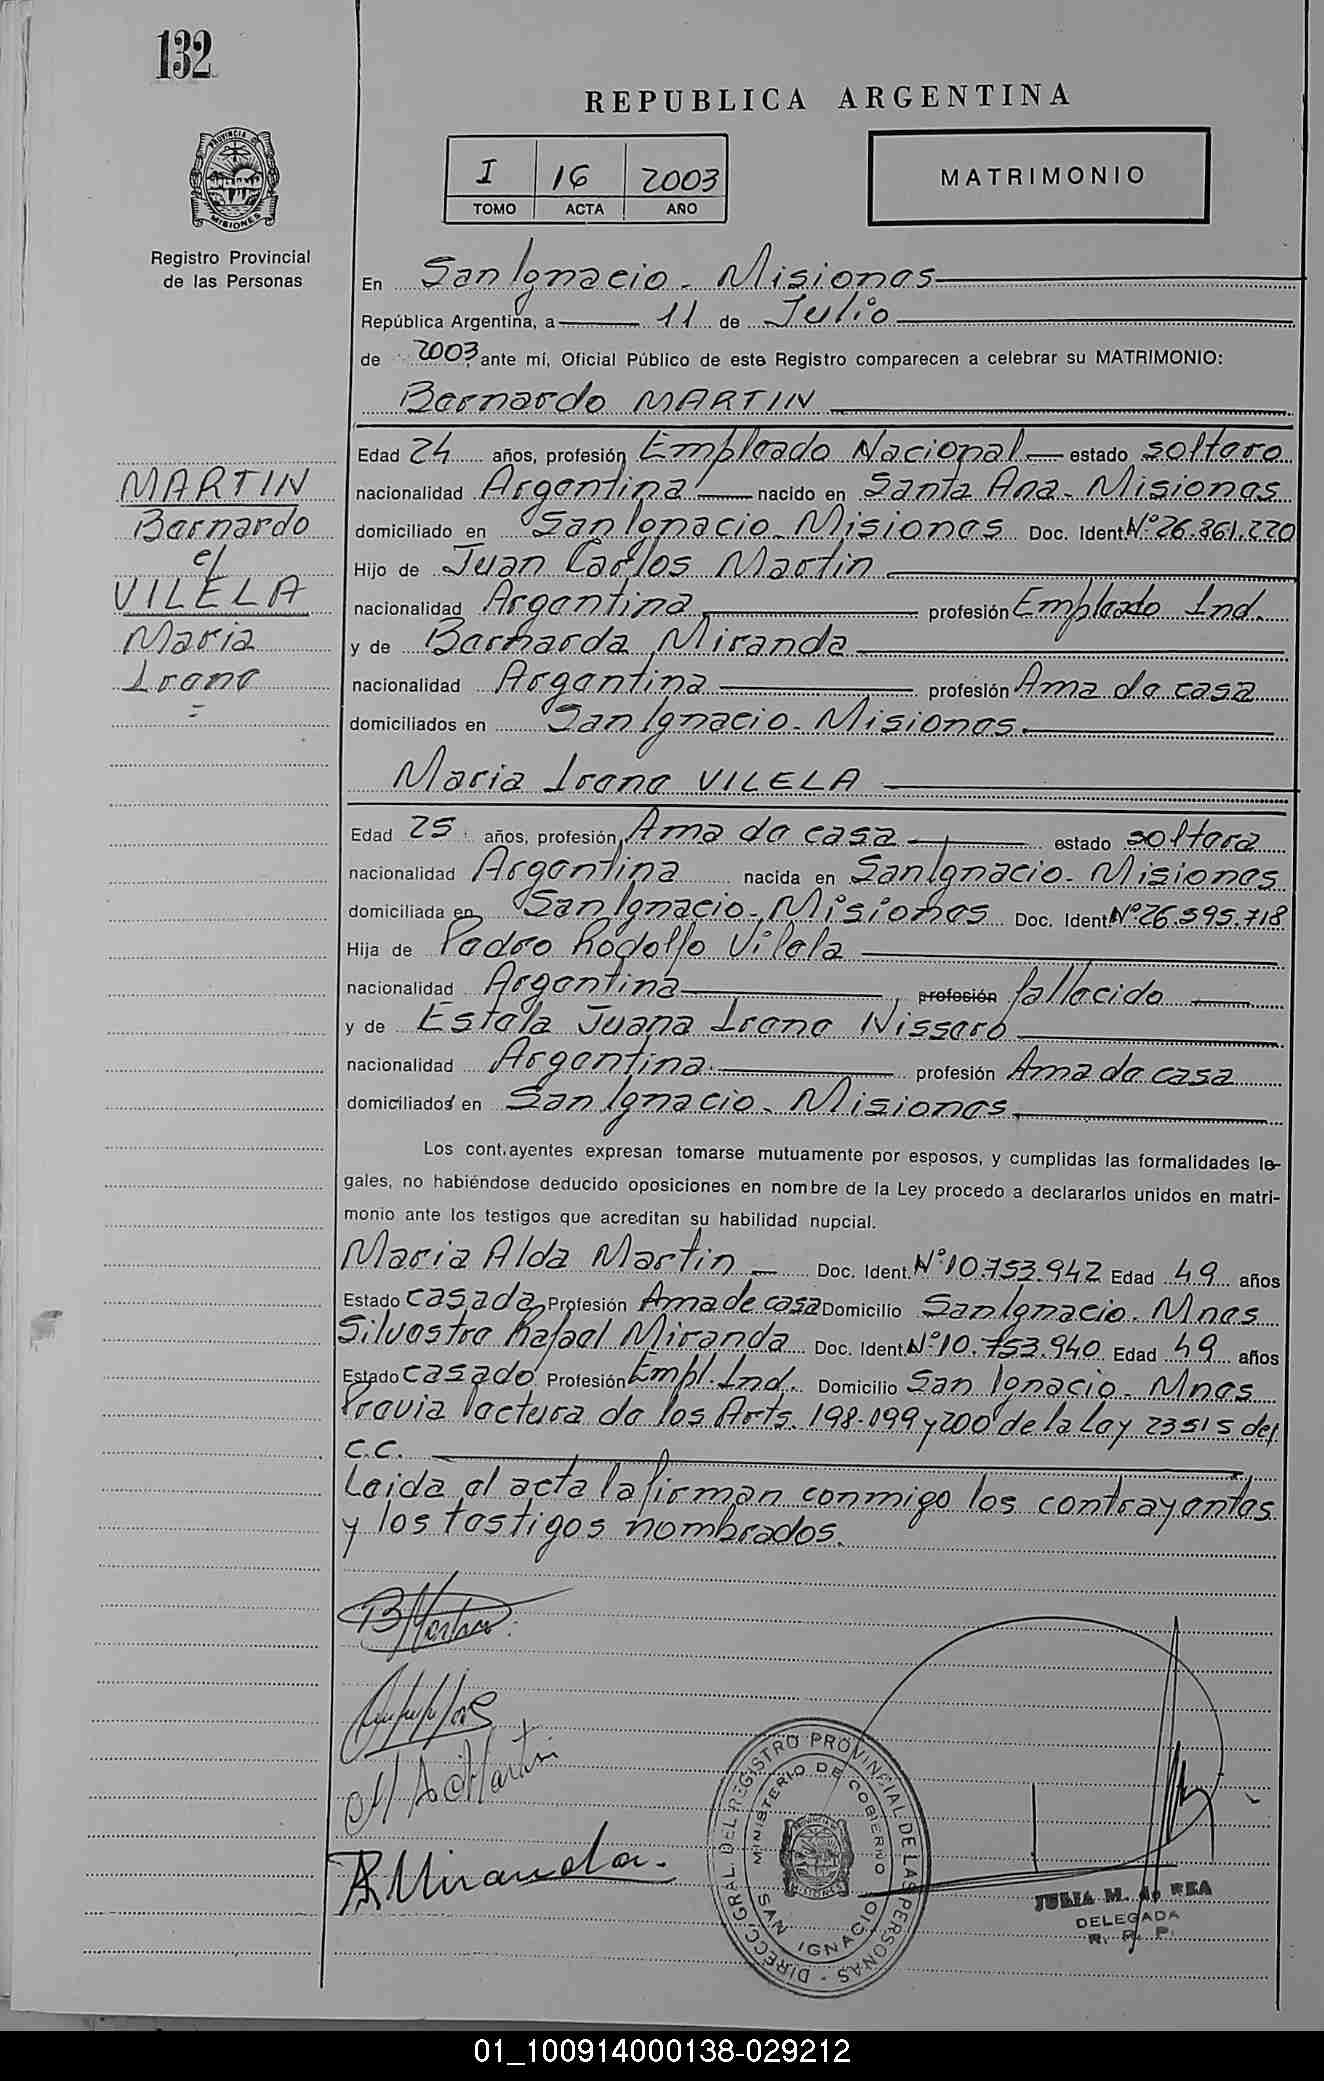 132
REPUBLICA ARGENTINA
I 16 2003
TOMO ACTA AÑO
MATRIMONIO
PROVINCIA DE MISIONES
Registro Provincial
de las Personas
En San Ignacio - Misiones
República Argentina, a 11 de Julio
de 2003, ante mí, Oficial Público de este Registro comparecen a celebrar su MATRIMONIO:
Bernardo MARTIN
Edad 24 años, profesión Empleado Nacional estado soltero
nacionalidad Argentina nacido en Santa Ana - Misiones
domiciliado en San Ignacio - Misiones Doc. Ident. Nº 26.861.220
Hijo de Juan Carlos Martin
nacionalidad Argentina profesión Empleado Ind.
y de Bernarda Miranda
nacionalidad Argentina profesión Ama de casa
domiciliados en San Ignacio - Misiones.
MARTIN
Bernardo
c/
VILELA
Maria
Irene
=
Maria Irene VILELA
Edad 25 años, profesión Ama de casa estado soltera
nacionalidad Argentina nacida en San Ignacio - Misiones
domiciliada en San Ignacio - Misiones Doc. Ident. Nº 26.595.718
Hija de Pedro Rodolfo Vilela
nacionalidad Argentina, profesión fallecido
y de Estela Juana Irene Nissero
nacionalidad Argentina profesión Ama de casa
domiciliados en San Ignacio - Misiones
Los cont,ayentes expresan tomarse mutuamente por esposos, y cumplidas las formalidades le-
gales, no habiéndose deducido oposiciones en nombre de la Ley procedo a declararlos unidos en matri-
monio ante los testigos que acreditan su habilidad nupcial.
Maria Alda Martin Doc. Ident. Nº 10.753.942 Edad 49 años
Estado casada Profesión Ama de casa Domicilio San Ignacio - Mnes
Silvestre Rafael Miranda Doc. Ident. Nº 10.753.940 Edad 49 años
Estado casado Profesión Empl. Ind. Domicilio San Ignacio - Mnes
Previa lectura de los Arts. 198-199 y 200 de la Ley 23515 del
C.C.
Leida el acta la firman conmigo los contrayentes
y los testigos nombrados.
B Martin
M A Martin
R Miranda.
DIRECC. GRAL. DEL REGISTRO PROVINCIAL DE LAS PERSONAS -
MINISTERIO DE GOBIERNO
SAN IGNACIO
JULIA M. de REA
DELEGADA
R. P. P.
01_100914000138-029212